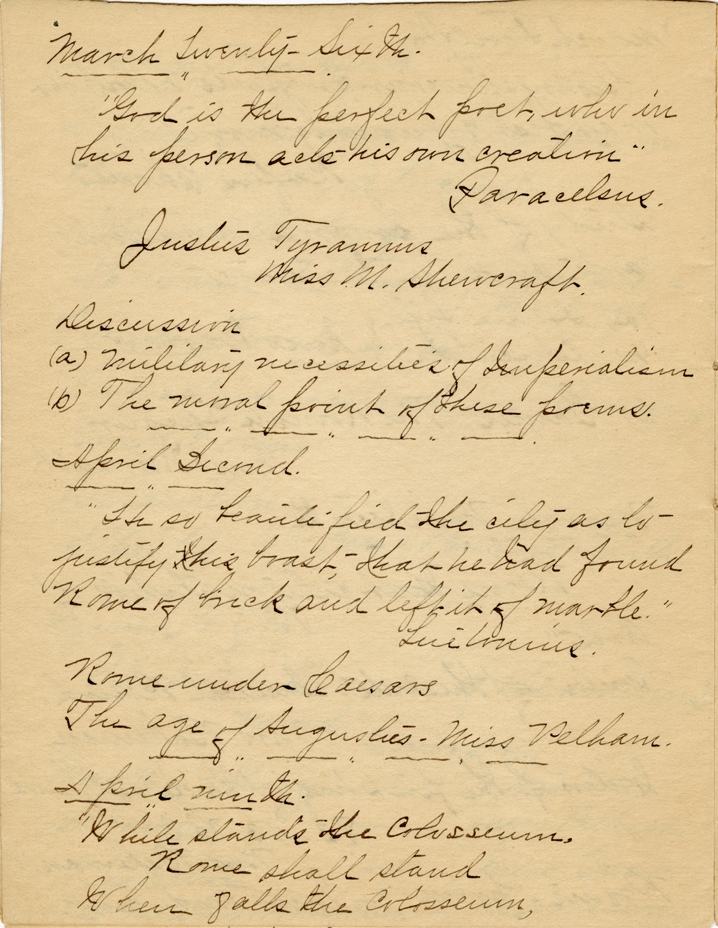 March Twenty-Sixth.
"God is the perfect poet, who in
his person acts his own creation"
Paracelsus.
Justus Tyrannus
Miss M. Shewcraft.
Discussion
(a) Military necessities of Imperialism
(b) The moral point of these poems.
April Second.
"He so beautified the city as to
justify this boast, that he had found
Rome of brick and left it of marble."
Suetonius.
Rome under Caesars
The age of Augustus - Miss Pelham.
April ninth.
"While stands the Colosseum,
Rome shall stand
When falls the Colosseum,